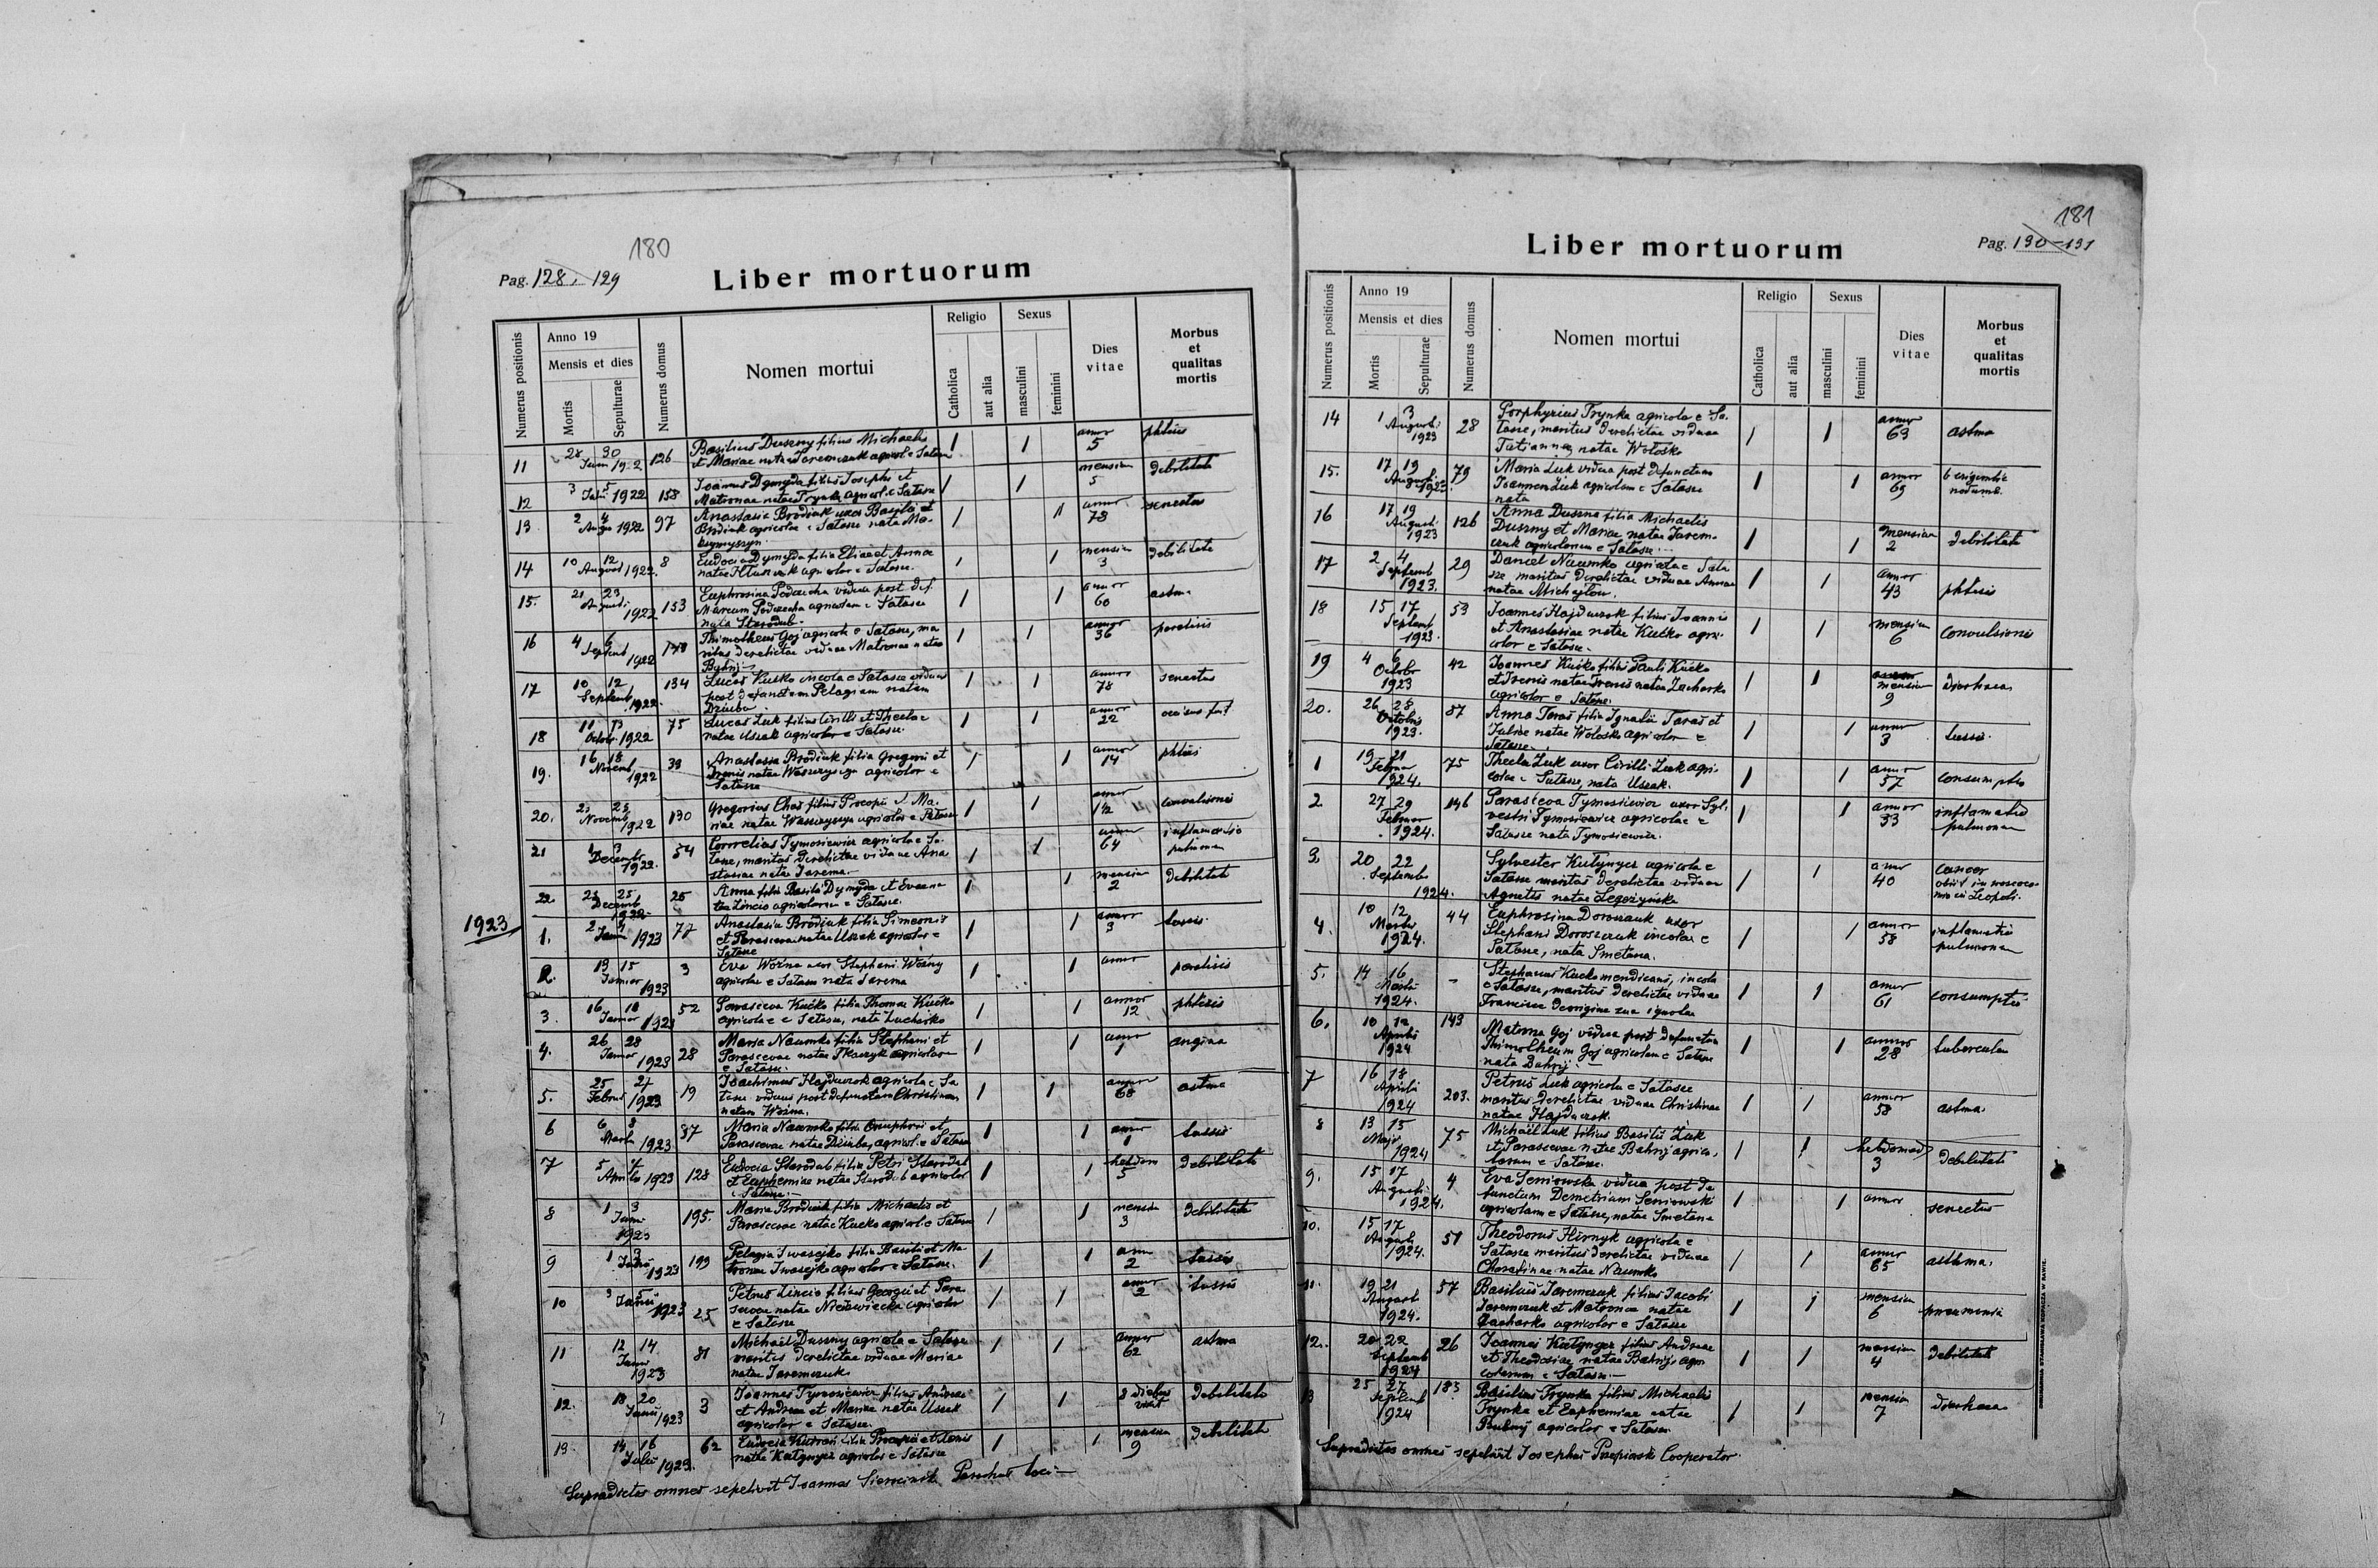 180
Pag. 128, 129
Liber mortuorum
Numerus positionis
Anno 19
Mensis et dies
Mortis
Sepulturae
Numerus domus
Nomen mortui
Religio
Catholica
aut alia
Sexus
masculini
feminini
Dies
vitae
Morbus
et
qualitas
mortis
11 28 30 Junii 1922 126 Basilius Duszny filius Michaelis
et Mariae natae Jaremczuk agricol. e Satasze annor 5 phtisis
12 3 5 Julii 1922 158 Joannes Dymyda filius Josephi et
Matronae natae Trynka agricol. e Satasze mensium 5 debilitate
13 2 4 Augu 1922 97 Anastasia Brodiuk uxor Basilii
Brodiuk agricolae e Satasze nata annor 78 senectus
14 10 12 August 1922 8 Eudocia Dymyda filia Eliae et Annae
agricolor e Satasze. mensium 3 debilitate
15. 21 23 Augusti 1922 153 Euphrosina vidua post def.
Marcum agricolam e Satasze
nata Starodub. annor 60 astma
16 4 6 Septemb 1922 Thimotheus Goj agricola e Satasze, ma
ritus derelictae viduae Matronae natae
annor 36 paralisis
17 10 12 Septemb 1922 134 Lucas Kućko incola e Satasze viduus
post defunctam Pelagiam natam
Dziuba annor 78 senectus
18 11 13 Octobr 1922 75 Lucas Luk filius Cirilli et Theclae
natae Uszak agricolor e Satasze. annor 22 occisus fuit
19. 16 18 Novemb 1922 39 Anastasia Brodiuk filia Gregorii et
Irenis natae agricolor e
Satasze annor 14 phtisis
20. 23 25 Novemb 1922 130 Gregorius Chas filius Procopii et Ma
riae natae agricolor e Satasze annor 1½ convulsionis
21 1 3 Decembr 1922. 54 Cornelius Tymosiewicz agricola e Sa
tasze, maritus derelictae viduae Ana
stasiae natae Jarema. annor 64 inflamatio
pulmonum
22. 23 25 Decemb 1922 25 Anna filia Basilii Dymyda et Evae na
tae Lincio agricolarum e Satasze. mensium 2 debilitate
1923
1. 2 4 Januarii 1923 77 Anastasia Brodiuk filia Simeonis
et Parascevae natae Uszak agricolor e
Satasze annor 3 tussis
2. 13 15 Januar 1923 3 Eva Woźna uxor Stephani Woźny
agricolae e Satasze nata Jarema annor paralisis
3. 16 18 Januar 1923 52 Parasceva Kućko filia Thomae Kućko
agricolae e Satasze, nata Zacharko annor 12 phtisis
4. 26 28 Januar 1923 28 Maria Naumko filia Stephani et
Parascevae natae Tkaczyk agricolarum
e Satasze. annor 1 angina
5. 25 27 Februar 1923 19 Joachimus Hajduczok agricola e Sa
tasze viduus post defunctam Christinam
natam Woźna. annor 68 astma
6 6 8 Marti 1923 87 Maria Naumko filia Onuphrii et
Parascevae natae Dziuba, agricol. e Satasze annor 1 tussis
7 5 7 Aprilis 1923 128 Eudocia Starodub filia Petri Starodub
et Euphemiae natae Starodub agricolor
e Satasze. hebdom 5 debilitate
8 1 3 Junii 1923 195. Maria Brodiuk filia Michaelis et
Parascevae natae Kućko agricol. e Satasze mensium 3 debilitate
9 1 3 Junii 1923 199 Pelagia Iwasejko filia Basilii et Ma
tronae Iwasejko agricolor e Satasze. annor 2 tussis
10 3 5 Junii 1923 25 Petrus Lincio filius Georgii et Para
scevae natae agricolor
e Satasze annor 2 tussis
11 12 14 Junii 1923 81 Michaël Duszny agricola e Satasze
maritus derelictae viduae Mariae
natae Jaremczuk annor 62 astma
12. 18 20 Junii 1923 3 Joannes Tymosiewicz filius Andreae
et Andreae et Mariae natae Uszak
agricolor e Satasze. 2 diebus
vixit debilitate
13. 14 16 Julii 1923. 62 Eudocia filia Procopii et Irenis
natae Kutynycz agricolor e Satasze mensium 9 debilitate
Supradictos omnes sepelivit Joannes Parochus loci
181
Pag. 130-131
Liber mortuorum
Numerus positionis
Anno 19
Mensis et dies
Mortis
Sepulturae
Numerus domus
Nomen mortui
Religio
Catholica
aut alia
Sexus
masculini
feminini
Dies
vitae
Morbus
et
qualitas
mortis
14 1 3 Augusti 1923 28 Porphyrius Trynka agricola e Sa
tasze, maritus derelictae viduae
Tatiannae natae Wołoszko annor 63 astma
15. 17 19 Augusti 1923. 79 Maria Luk vidua post defunctum
Joannem Luk agricolam e Satasze
nata annor 69
16 17 19 Augusti 1923 126 Anna Duszna filia Michaelis
Duszny et Mariae natae Jarem
czuk agricolarum e Satasze. mensium 2 debilitate
17 2 4 Septemb 1923. 29 Daniel Naumko agricola e Sata
sze maritus derelictae viduae Annae
natae Michajłow. annor 43 phtisis
18 15 17 Septemb 1923. 53 Joannes Hajduczok filius Joannis
et Anastasiae natae Kućko agri
color e Satasze. mensium 6 convulsionis
19 4 6 Octobr 1923 42 Joannes Kućko filius Pauli Kućko
et Irenis natae Irenis natae Zacharko
agricolor e Satasze. mensium 9 diarhaea
20. 26 28 Octobris 1923. 87 Anna Taras filia Ignatii Taras et
Juliae natae Wołoszko agricolor e
Satasze. annor 3 tussis.
1 19 21 Februar 1924. 75 Thecla Luk uxor Cirilli Luk agri
colae e Satasze, nata Uszak. annor 57 consumptio
2. 27 29 Februar 1924. 146 Parasceva Tymosiewicz uxor Syl
vestri Tymosiewicz agricolae e
Satasze nata Tymosiewicz. annor 33 inflamatio
pulmonum
3. 20 22 Septembr 1924. Sylvester Kutynycz agricola e
Satasze maritus derelictae viduae
Agnetis natae Legezyńska annor 40 cancer
obiit in nosoco
mio in Leopoli.
4. 10 12 Martii 1924. 44 Euphrosina Doroszczuk uxor
Stephani Doroszczuk incolae e
Satasze, nata Smetana. annor 58 inflamatio
pulmonum
5. 14 16 Martii 1924. - Stephanus Kućko mendicans, incola
e Satasze, maritus derelictae viduae
Franciscae de origine sua ignotae annor 61 consumptio
6. 10 12 Aprilis 1924 143 Matrona Goj vidua post defunctum
Thimotheum Goj agricolam e Satasze
nata Bahrij. annor 28 tuberculosa
7 16 18 Aprilis 1924 203. Petrus Luk agricola e Satasze
maritus derelictae viduae Christinae
natae Hajduczok. annor 58 astma.
8 13 15 Maji 1924 75 Michaël Luk filius Basilii Luk
et Parascevae natae Bahrij agrico
larum e Satasze. hebdomad 3 debilitate
9. 15 17 Augusti 1924. 4 Eva Seniowska vidua post de
functum Demetrium Seniowski
agricolam e Satasze, natae Smetana annor senectus
10. 15 17 August 1924. 51 Theodorus Hirnyk agricola e
Satasze maritus derelictae viduae
natae Naumko annor 65 asthma.
11. 19 21 August 1924. 57 Basilius Jaremczuk filius Jacobi
Jaremczuk et Matronae natae
Zacharko agricolor e Satasze mensium 6 pneumonia
12. 20 22 Septemb 1924 26 Joannes Kutynycz filius Andreae
et Theodosiae natae Bahrij agri
colarum e Satasze. mensium 4 debilitate
13 25 27 Septemb 1924 183 Basilius Trynka filius Michaelis
Trynka et Euphemiae natae
agricolor e Satasze. mensium 7 diarhaea
Supradictos omnes sepelivit Josephus Cooperator.